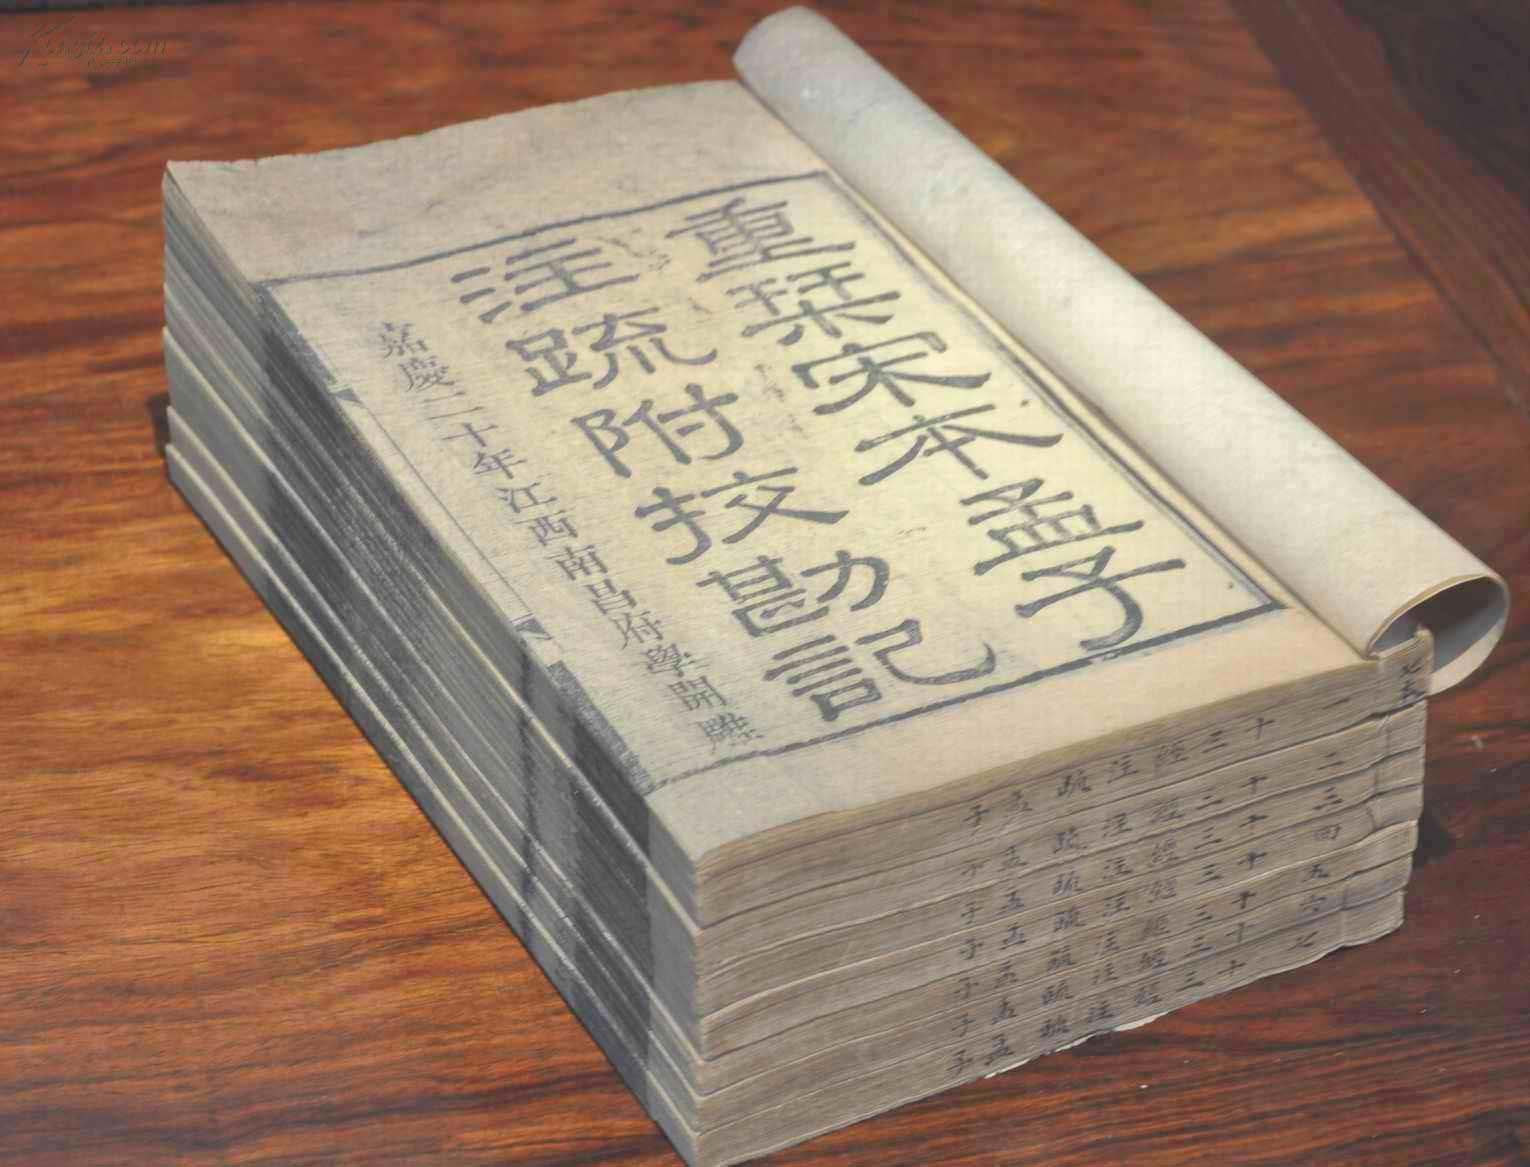 重栞宋本孟子
注疏附挍勘記
嘉慶二十年江西南昌府學開雕
十三經注疏 孟子 一
十三經注疏 孟子 二
十三經注疏 孟子 三
十三經注疏 孟子 四
十三經注疏 孟子 五
十三經注疏 孟子 六
十三經注疏 孟子 七